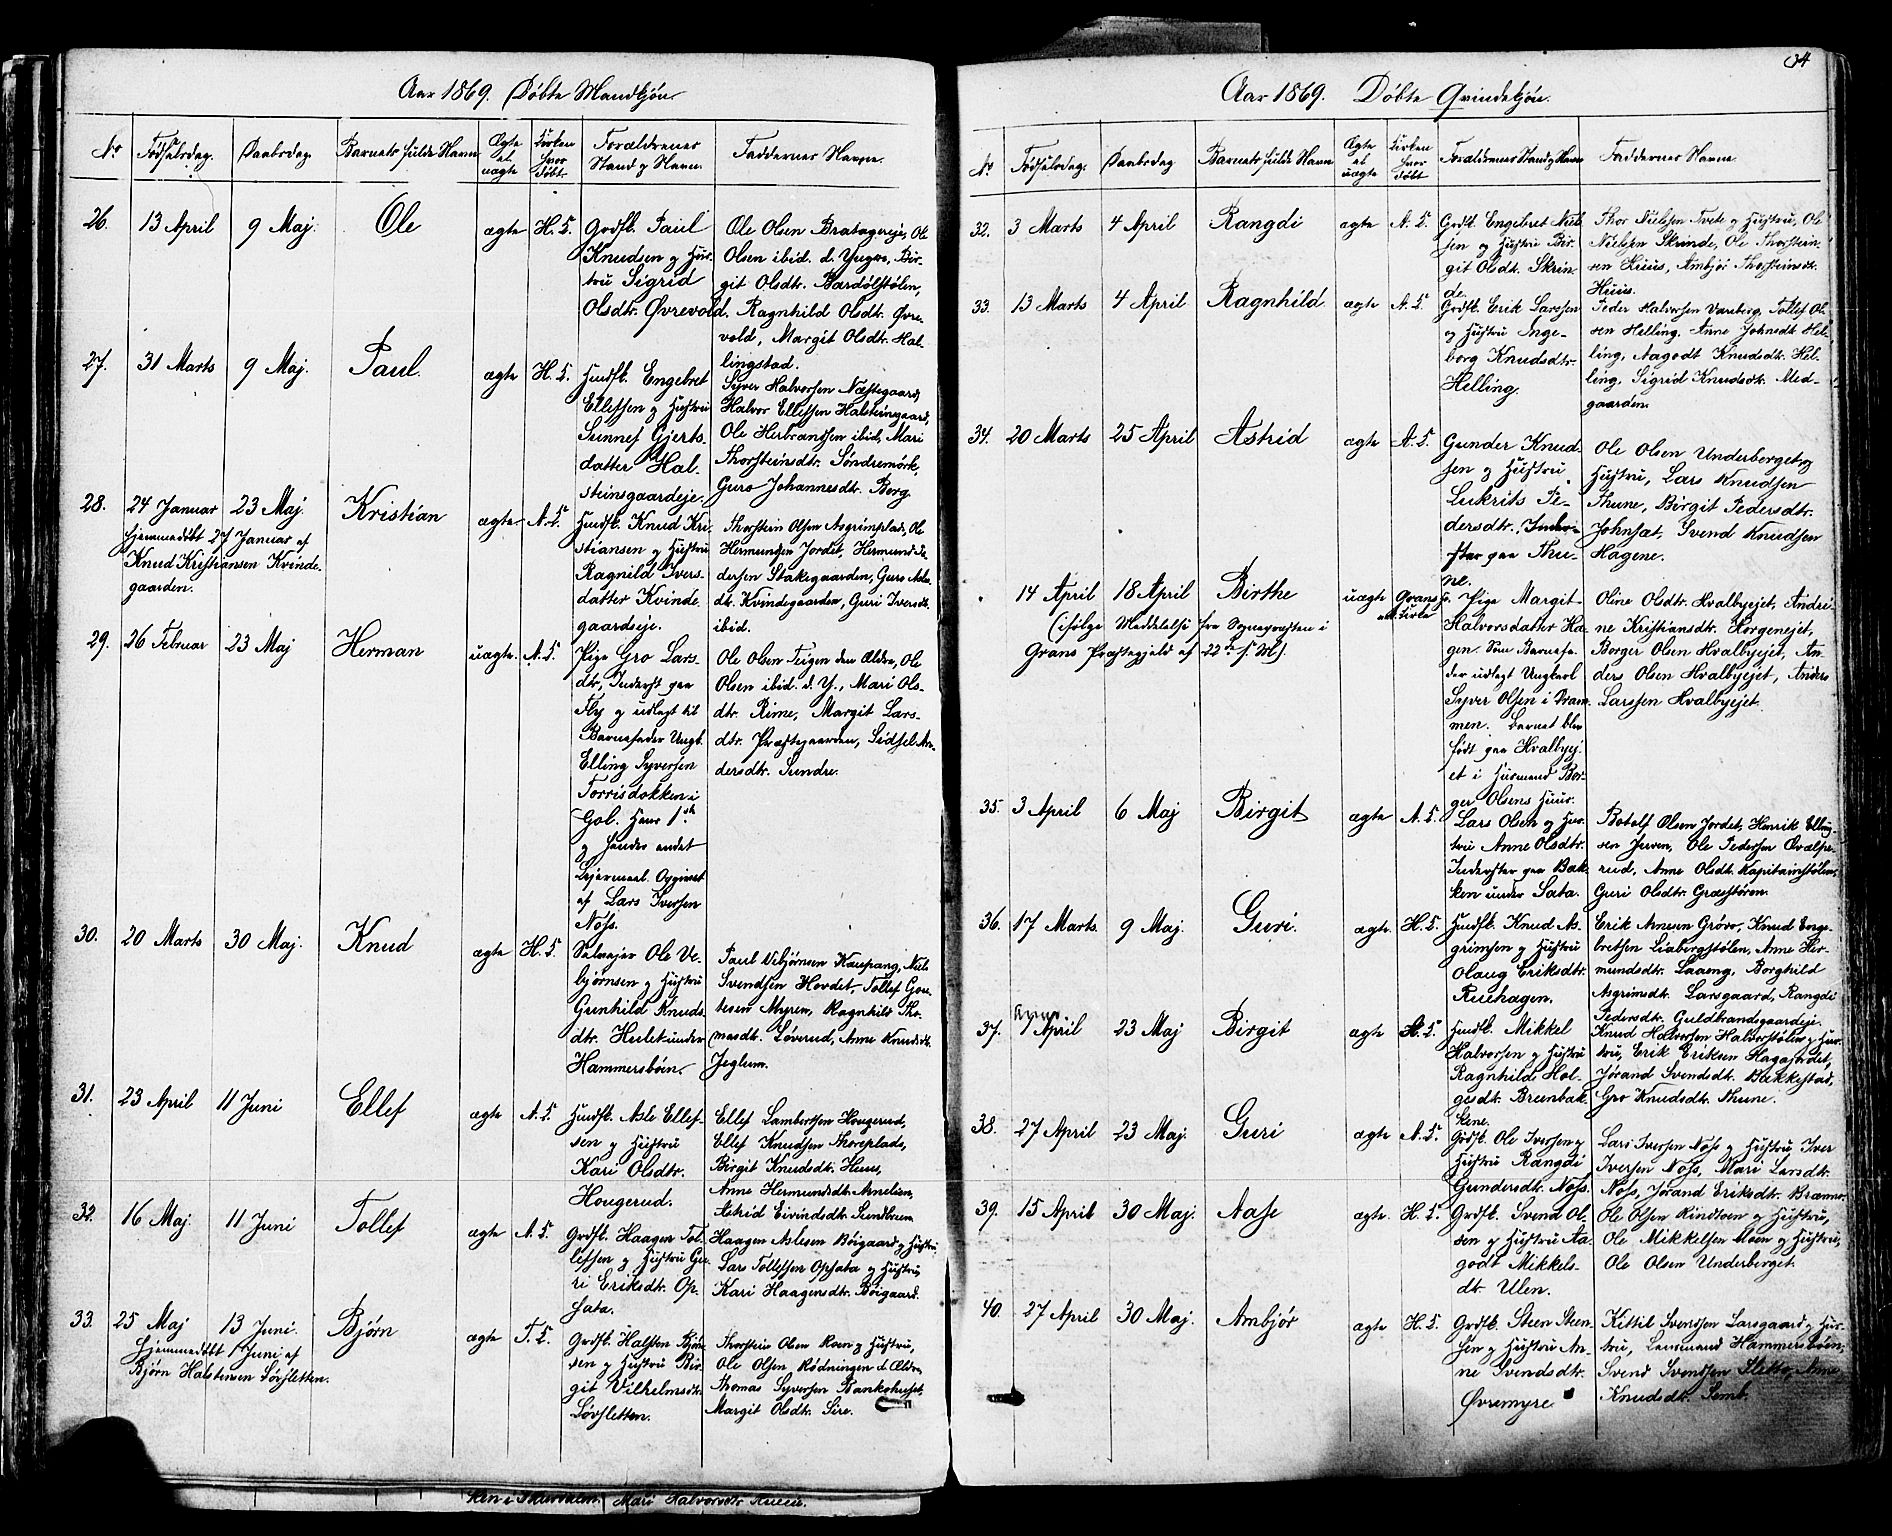 Aar 1869. Døbte Mandkjøn.
No Fødselsdag. Daabsdag. Barnets fulde Navn Ægte el uægte Kirken hvor døbt. Forældrenes Stand og Navn. Faddernes Navne.
26. 13 April 9 Maj. Ole ægte H. K. Grdsb. Paul
Knudsen og Hus-
tru Sigrid
Olsdtr. Øvrevold.
Ole Olsen Bratagereje, Ole
Olsen ibid. d. Yngre, Bir-
git Olsdtr. Bardølstølen,
Ragnhild Olsdtr. Øvre-
vold, Margit Olsdtr. Hal-
lingstad.
27. 31 Marts 9 Maj. Paul. ægte H. K. Husfb. Engebret
Ellefsen og Hustru
Sunnef Gjerts-
datter Hal-
steinsgaardeje.
Syver Halvorsen Næstegaard,
Halvor Ellefsen Halsteinsgaard,
Ole Herbrandsen ibid, Mari
Thorsteinsdtr. Søndremørk,
Guro Johannesdtr. Borg.
28. 24 Januar 23 Maj. Kristian ægte A. K.
hjemmedøbt 27 Januar af
Knud Kristiansen Kvinde-
gaarden.
Husfb. Knud Kri-
stiansen og Hustru
Ragnild Ivers-
datter Kvinde-
gaardseje.
Thorstein Olsen Asgrimplads, Ole
Hermundsen Jordet, Hermund Pe-
dersen Stakegaarden, Guro
dtr. Kvindegaarden, Guri Iversdt.
ibid.
29. 26 Februar 23 Maj Herman uægte. A. K.
Pige Gro Lars-
dtr, Inderst paa
Fly og udlagt til
Barnefader Ungk.
Elling Syversen
Torrisdokken i
Gol. Hans 1ste
og hendes andet
Lejermaal. Opgivet
af Lars Iversen
Nøss.
Ole Olsen Teigen den Ældre, Ole
Olsen ibid. d. Y., Mari Ols-
dtr. Rime, Margit Lars-
dtr. Præstegaarden, Sidsel An-
dersdtr. Sundre.
30. 20 Marts 30 Maj. Knud ægte H. K.
Selvejer Ole Ve-
bjørnsen og Hustru
Gunhild Knuds-
dtr. Hesleik under
Hammersbøen.
Paul Vebjørnsen Kaupang, Niels
Svendsen Hovdet, Tollef Gou-
tesen Myren, Ragnhild Tho-
masdt. Løverud, Anne Knudsdt.
Jeglum.
31. 23 April 11 Juni Ellef ægte A. K.
Husfb. Asle Ellef-
sen og Hustru
Kari Olsdtr.
Hougerud.
Ellef Lambertsen Hougerud,
Ellef Knudsen Thoreplads,
Birgit Knudsdt. Huus,
Anne Hermundsdt.
Astrid Eivindsdt. Sundbreen
32. 16 Maj 11 Juni Tollef ægte A. K.
Grdfb. Haagen Tol-
lefsen og Hustru Gu-
ri Eriksdtr. Op-
sata.
Haagen Aslesen Bøigaard og Hustru
Lars Tollefsen Opsata og Hustru,
Kari Haagensdtr. Bøigaard.
33. 25 Maj 13 Juni. Bjørn ægte T. K.
hjemmedøbt 1 Juni af
Bjørn Halstensen Løvsletten.
Grdfb. Halsten Bjørn-
sen og Hustru Bir-
git Vilhelmsdtr.
Løvsletten.
Thorstein Olsen Roen og Hustru,
Ole Olsen Rødningen d. Ældre,
Thomas Syversen Bankehuset,
Margit Olsdtr. Sire.
Mari Halvorsdtr
34
Aar 1869. Døbte Qvindekjøn.
No Fødselsdag. Daabsdag Barnets fulde Navn Ægte el uægte Kirken hvor døbt Forældrenes Stand og Navn Faddernes Navne.
32. 3 Marts 4 April Rangdi ægte A. K.
Grdfb. Engebret Niel-
sen og Hustru Bir-
git Olsdt. Skrin-
de.
Thor Nielssen Tvete og Hustru, Ole
Nielssen Skrinde, Ole Thorstein-
sen Huus, Ambjør Thorsteinsdt.
Huus.
33. 13 Marts 4 April Ragnhild ægte A. K.
Grdfb. Erik Larssen
og Hustru Inge-
borg Knudsdtr.
Helling.
Peder Halvorsen Vareberg, Tollef Ol-
sen Helling, Anne Johnsdt. Hel-
ling, Aagodt Knudsdt. Hel-
ling, Sigrid Knudsdt. Med-
gaarden.
34. 20 Marts 25 April Astrid ægte A. K.
Gunder Knud-
sen og Hustru
Lukrits Pe-
dersdtr. Inder-
ster paa Thu-
ne.
Ole Olsen Underberget og
Hustru, Lars Knudsen
Thune, Birgit Pedersdtr.
Johnsæt, Svend Knudsen
Hagene.
14 April 18 April Birthe uægte Grans Kirke
(ifølge Meddelelse fra Sognepræsten i
Grans Præstegjeld af 22de s. M).
Pige Margit
Halvorsdatter Ha-
gen. Som Barnefa-
der udlagt Ungkarl
Syver Olsen i Dram-
men. Barnet blev
født paa Hvalbyej-
et i Husmand Bor-
ger Olsens Huus.
Oline Olsdt. Hvalbyejet, Andri-
ne Kristiansdt. Horgenejet,
Borger Olsen Hvalbyejet, An-
ders Olsen Hvalbyejet, Anders
Larssen Hvalbyejet.
35. 3 April 6 Maj Birgit ægte A. K.
Lars Olsen og Hus-
tru Anne Olsdtr.
Inderster paa Bak-
ken under Sata.
Botolf Olsen Jordet, Henrik Elling-
sen Juven, Ole Pedersen Qvælpe-
rud, Anne Olsdt. Kapitainstølen,
Guri Olsdtr. Græstøren.
36. 17 Marts. 9 Maj. Guri. ægte. H. K.
Husfb. Knud As-
grimsen og Hustru
Olaug Eriksdtr.
Ruehagen.
Erik Arnesen Grøve, Knud Enge-
bretsen Liabergstølen, Anne Her-
mundsdtr. Laaeng, Borghild
Asgrimsdt. Larsgaard, Rangdi
Pedersdt. Guldbrandsgaardeje.
37. 7 April 23 Maj Birgit ægte A. K.
Husfb. Mikkel
Halvorsen og Hustru
Ragnhild Hol-
gesdt. Breenbak-
kene.
Knud Halvorsen Halvorstølen og Hus-
tru, Erik Eriksen Hagajordet,
Jørand Svendsdt. Bakkestad,
Gro Knudsdt. Thune.
38. 27 April 23 Maj. Guri ægte A. K.
Grdfb. Ole Iversen og
Hustru Rangdi
Gundersdt. Nøss.
Lars Iversen Nøss og Hustru Iver
Iversen Nøss, Mari Larsdt.
Nøss, Jørand Eriksdt.
39. 15 April 30 Maj. Aase ægte. H. K.
Grdfb. Svend Ol-
sen og Hustru Aa-
godt Mikkels-
dt. Ulen.
Ole Olsen Rindtoen og Hustru,
Ole Mikkelsen Moen og Hustru,
Ole Olsen Underberget.
40. 27 April 30 Maj. Ambjør ægte H. K.
Grdfb. Steen Steen-
sen og Hustru An-
ne Svendsdtr.
Øvremyre.
Kittil Svendsen Larsgaard og Hus-
tru, Lensmand Hammersbøen,
Svend Svendsen Sletto, Anne
Knudsdt. Semb.